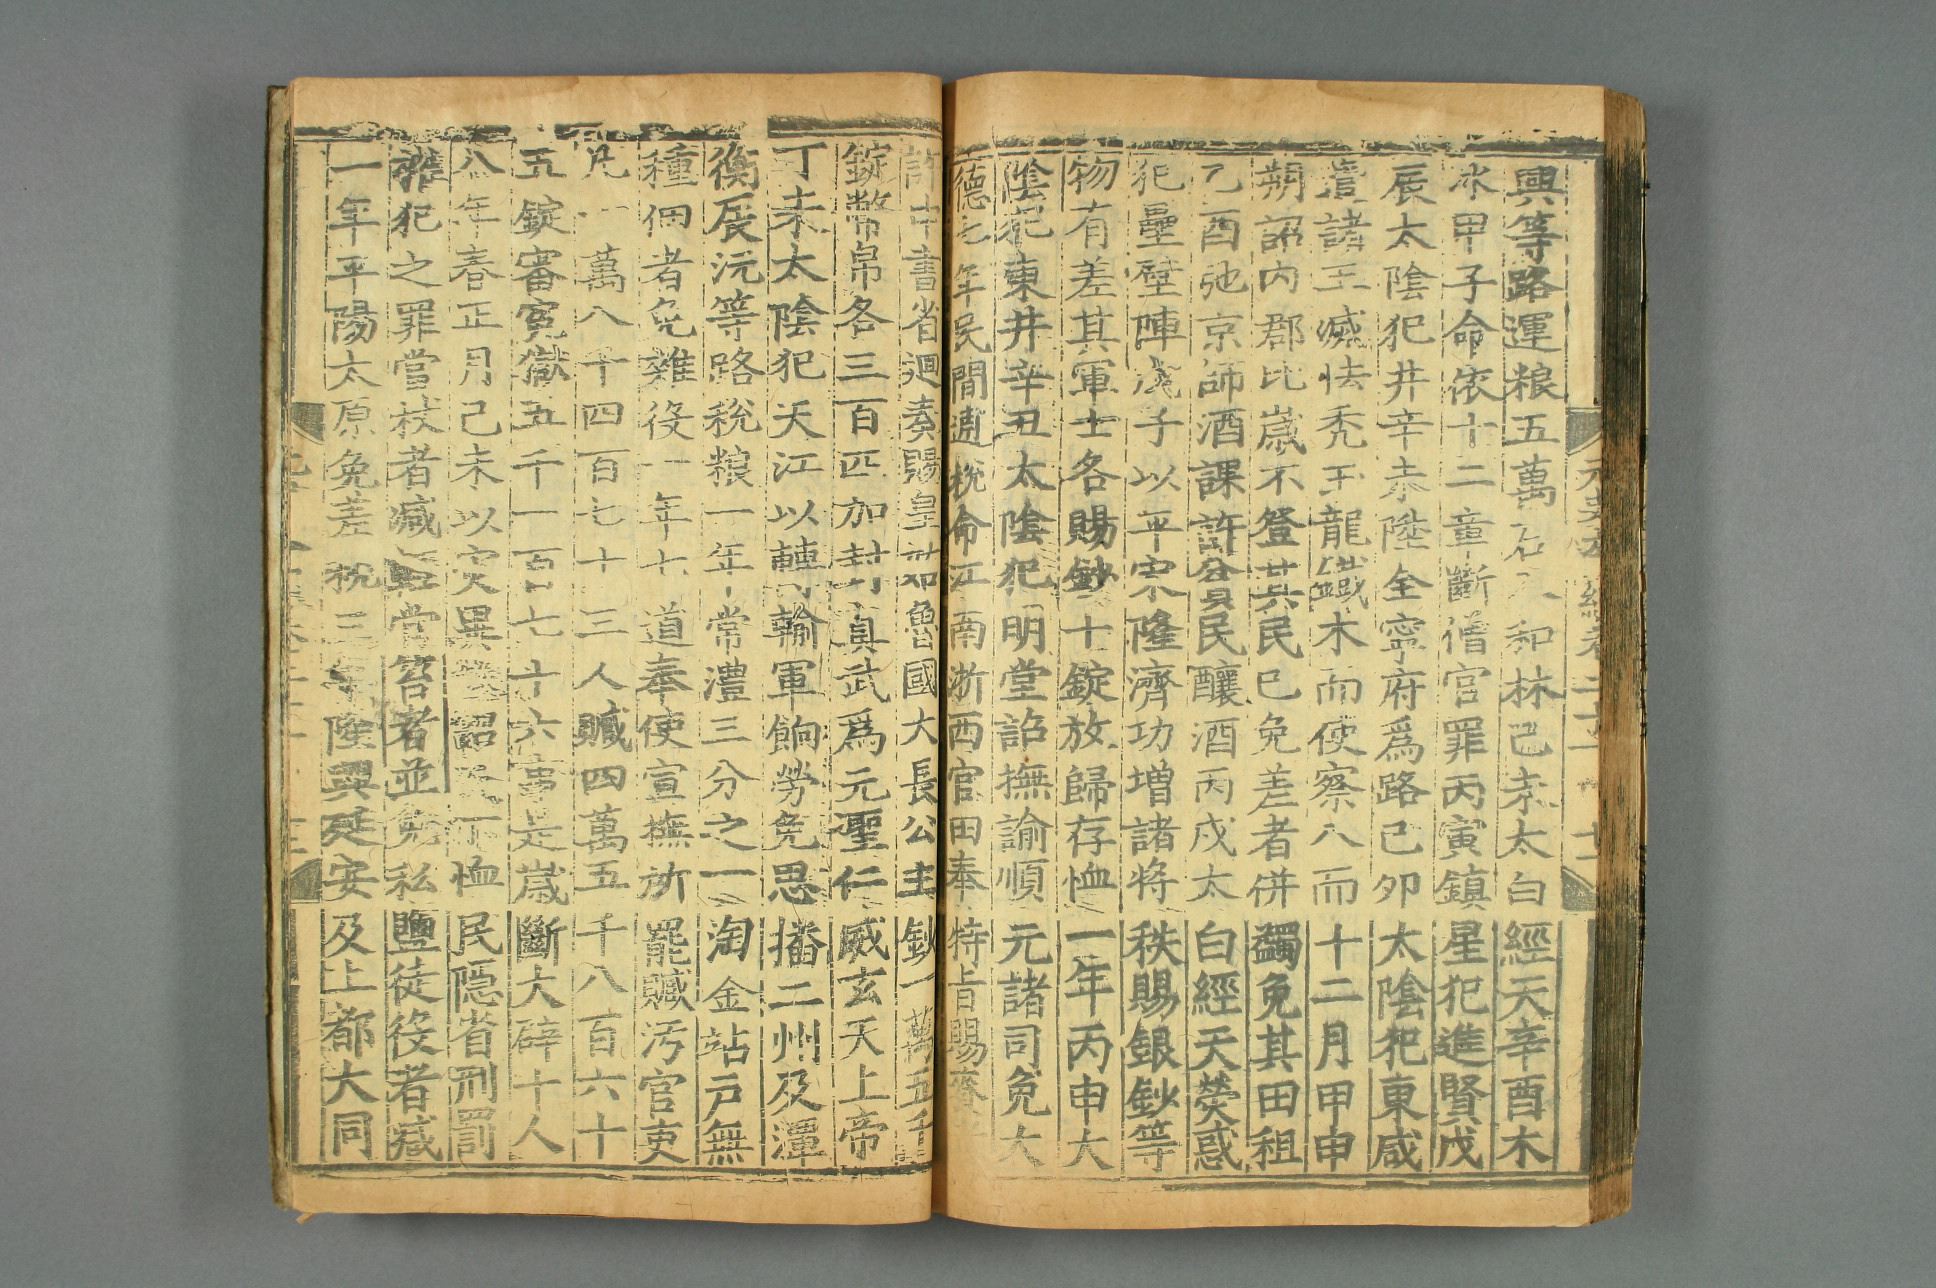 興等路運粮五萬石入和林己未太白經天辛酉木
氷甲子命依十二章斷僧官罪丙寅鎮星犯進賢戊
辰太陰犯井辛未陞全寧府為路己卯太陰犯東咸
詹諸王滅怯禿玉龍鐵木而使察八而十二月甲申
朔詔內郡比歲不登其民已免差者併蠲免其田租
乙酉弛京師酒課許貧民釀酒丙戌太白經天熒惑
犯壘壁陣戊子以平宋隆濟功增諸將秩賜銀鈔等
物有差其軍士各賜鈔十錠放歸存恤一年丙申大
陰犯東井辛丑太陰犯明堂詔撫諭順元諸司免大
德七年民間逋稅命江南浙西官田奉特旨賜賚
許中書省迴奏賜皇姑魯國大長公主鈔一萬五千
錠幣帛各三百匹加封真武為元聖仁威玄天上帝
丁未太陰犯天江以轉輸軍餉勞免思播二州及潭
衡辰沅等路稅粮一年常澧三分之一淘金站戶無
種佃者免雜役一年七道奉使宣撫所罷贓汚官吏
凡一萬八千四百七十三人贓四萬五千八百六十
五錠審冤獄五千一百七十六事是歲斷大辟十人
八年春正月己未以災異故詔天下恤民隱省刑罰
雜犯之罪當杖者減輕當笞者並免私鹽徒役者減
一年平陽太原免差稅三年隆興延安及上都大同
元史本紀卷二十一 十二